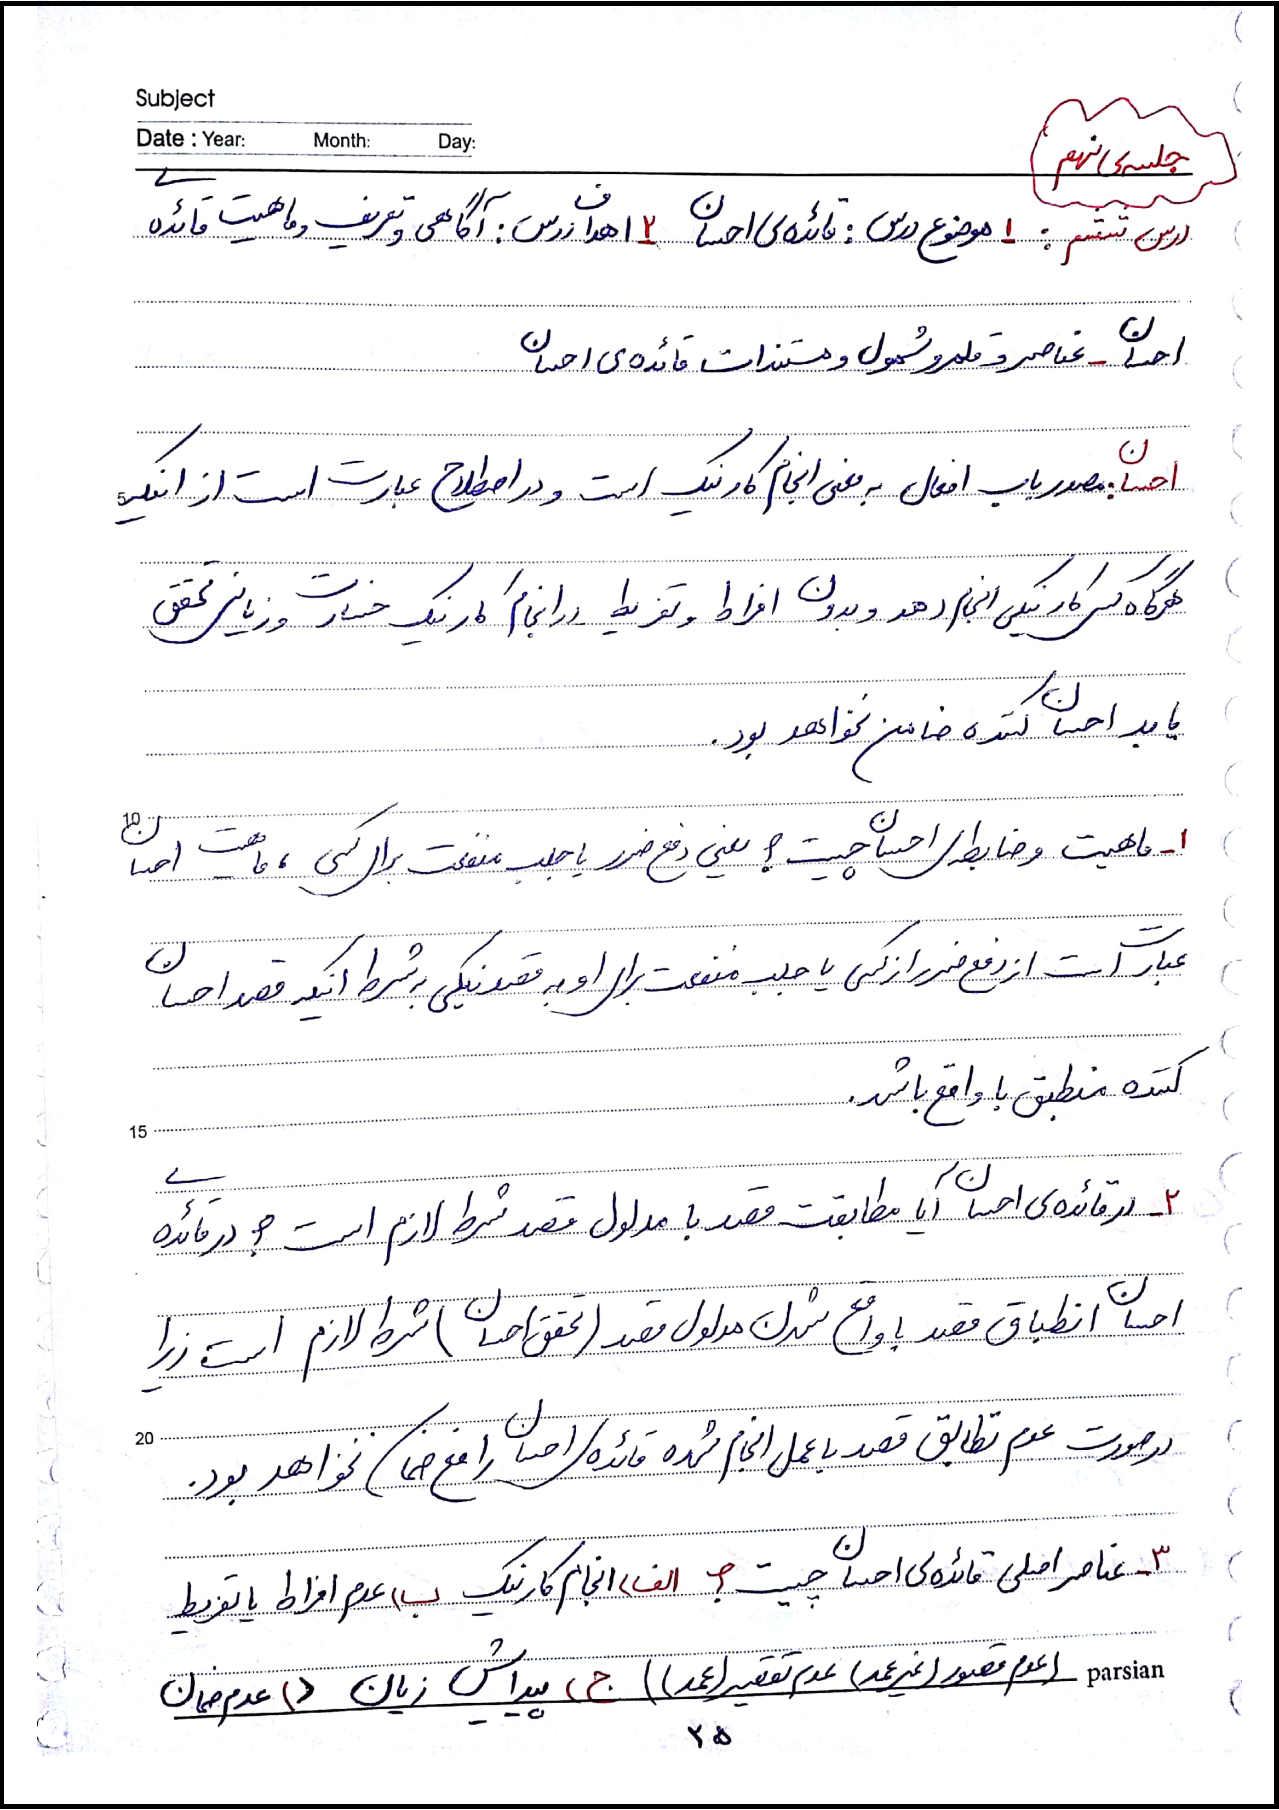 Subject
Date : Year: Month: Day:
جلسه‌ی نهم
درس ششم : ۱ موضوع درس : قائده‌ی احسان ۲ اهداف درس : آگاهی و تعریف و ماهیت قائده‌ی
احسان - عناصر و قلمرو شمول و مستندات قائده‌ی احسان
احسان: مصدر باب افعال به معنی انجام کار نیک است و در اصطلاح عبارت است از اینکه
5
هرگاه کسی کار نیکی انجام دهد و بدون افراط و تفریط در انجام کار نیک خسارت و زیانی تحقق
یابد احسان کننده ضامن نخواهد بود.
10
۱- ماهیت و ضابطه‌ی احسان چیست ؟ یعنی دفع ضرر یا جلب منفعت برای کسی ، ماهیت احسان
عبارت است از دفع ضرر از کسی یا جلب منفعت برای او به قصد نیکی به شرط آنکه قصد احسان
کننده منطبق با واقع باشد.
15
۲- در قائده‌ی احسان آیا مطابقت قصد با مدلول قصد شرط لازم است ؟ در قائده‌ی
احسان انطباق قصد با واقع شدن مدلول قصد (تحقق احسان) شرط لازم است زیرا
20
در صورت عدم تطابق قصد با عمل انجام شده قائده‌ی احسان رافع ضمان نخواهد بود.
۳- عناصر اصلی قائده‌ی احسان چیست ؟ الف) انجام کار نیک ب) عدم افراط یا تفریط
(عدم قصور (غیرعمد) عدم تقصیر (عمد)) ج) پیدایش زیان د) عدم ضمان
parsian
۲۵